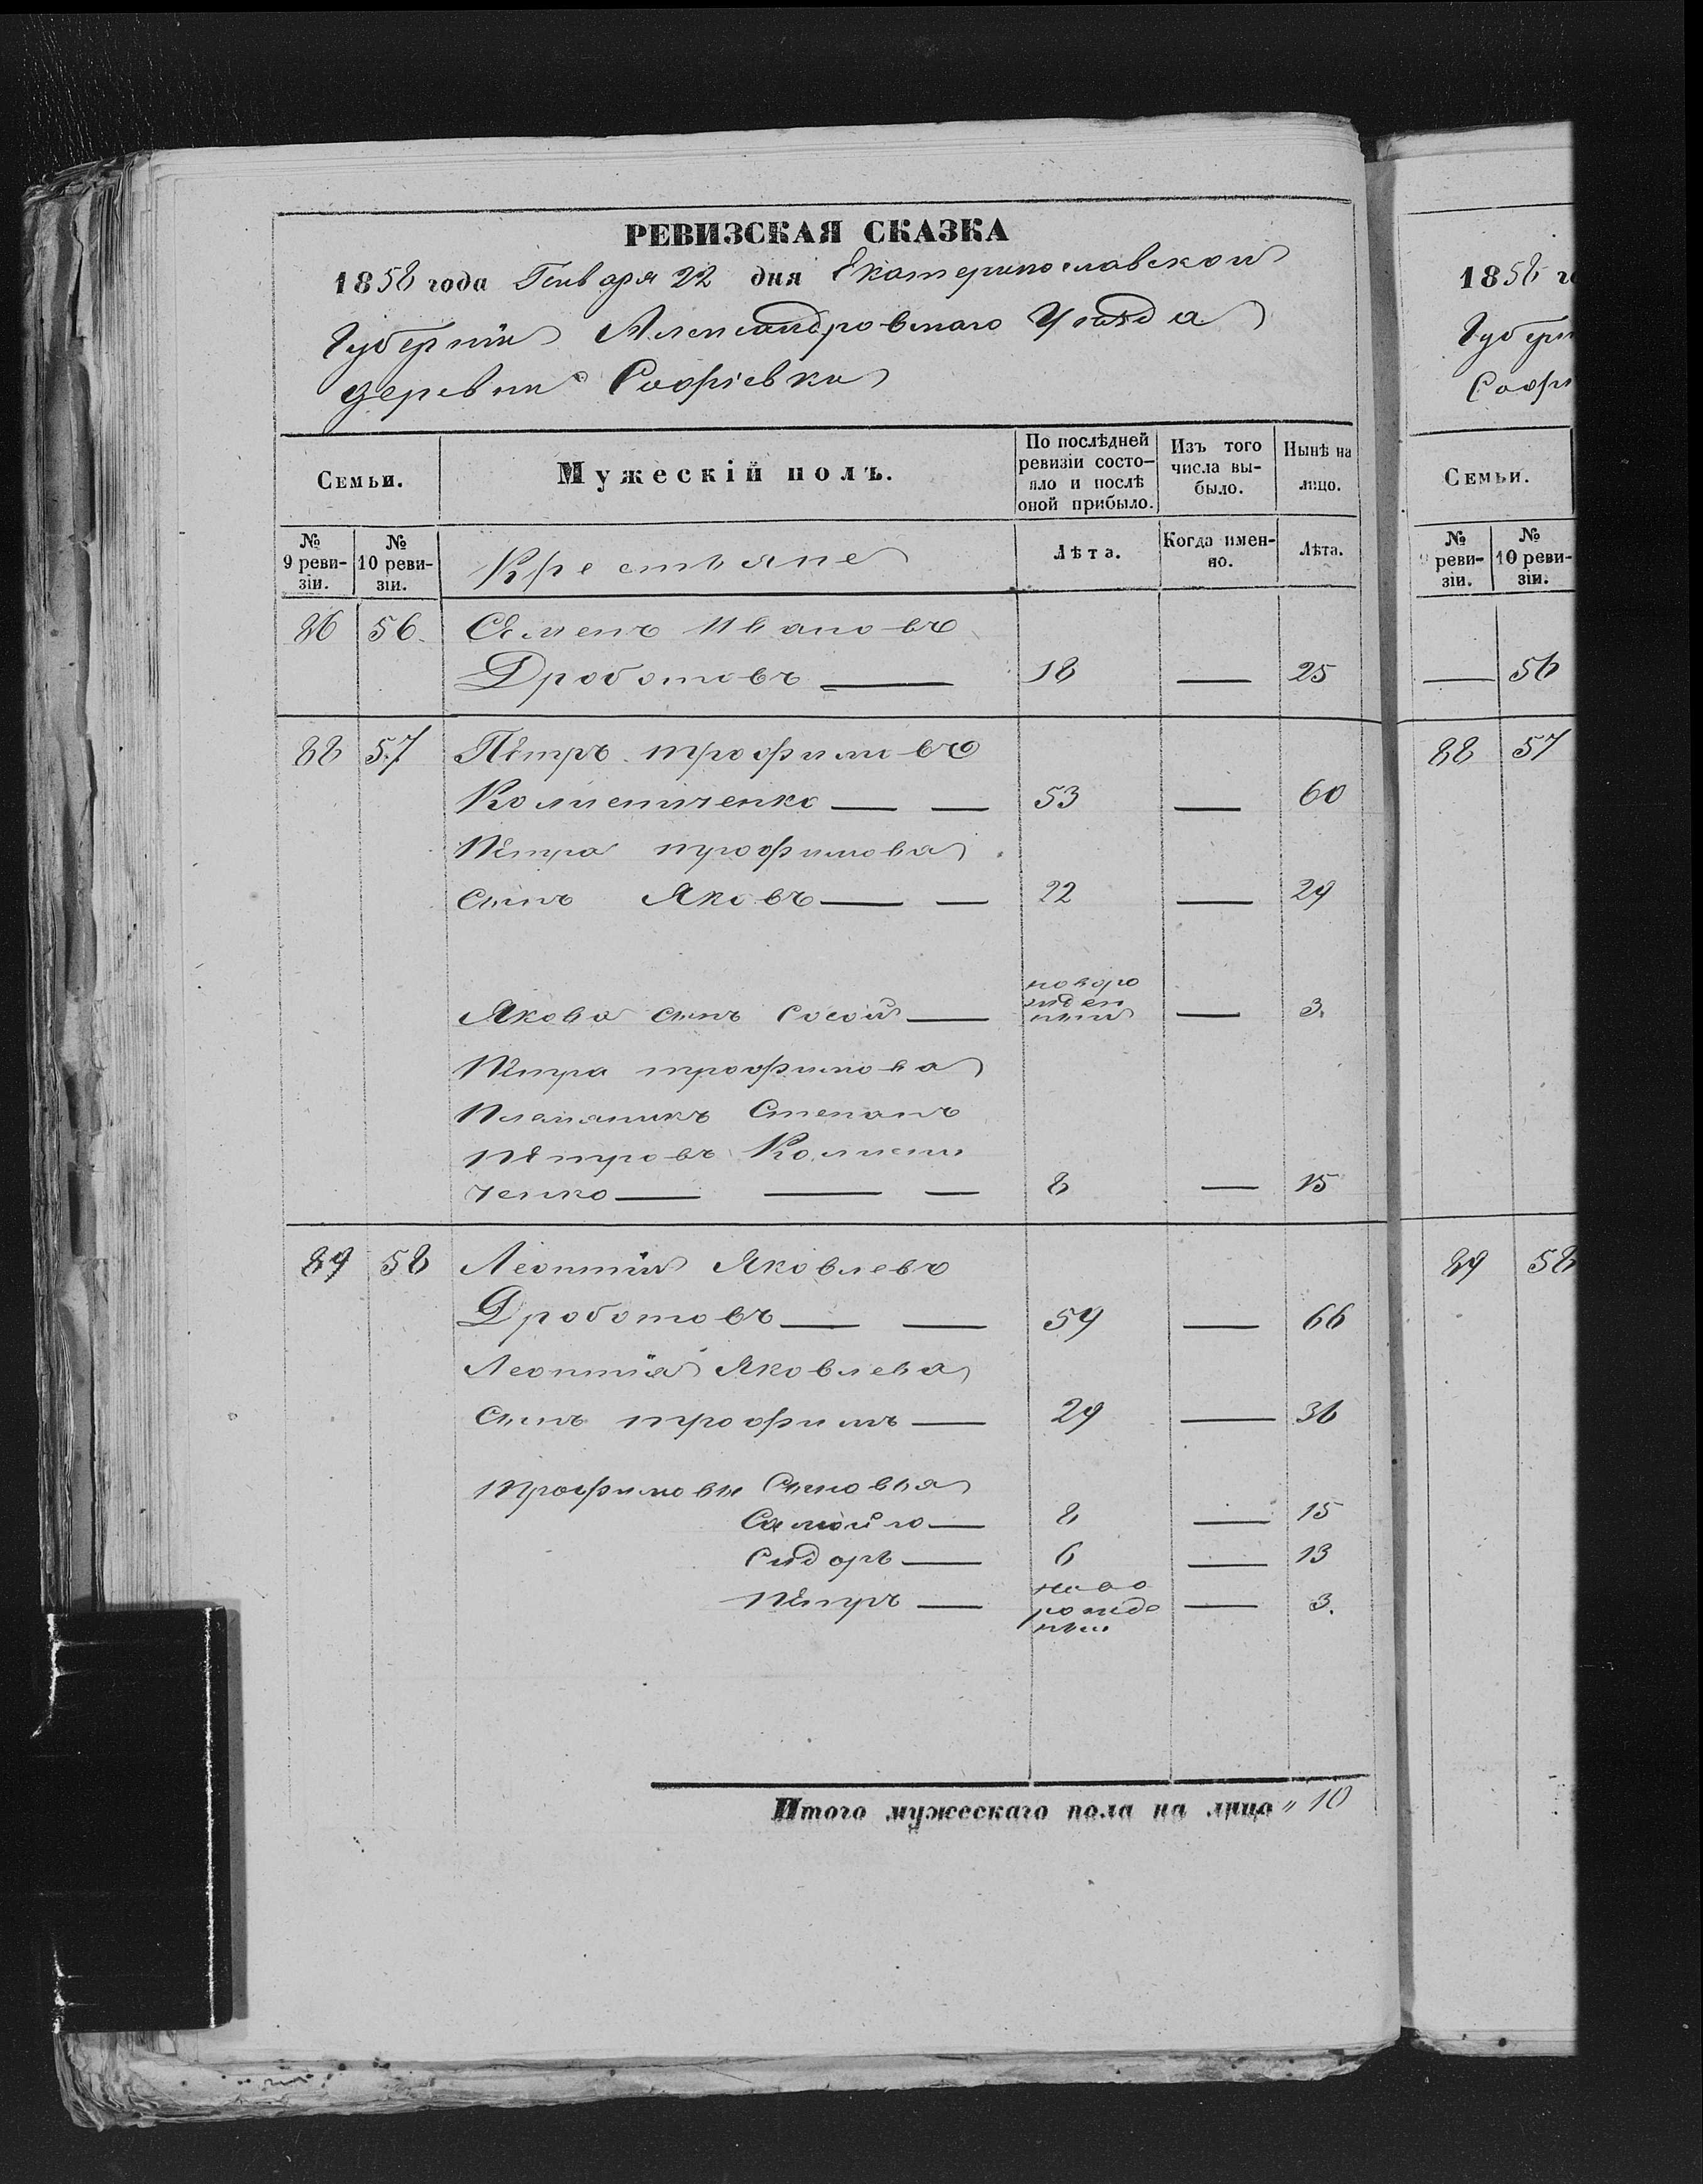 РЕВИЗСКАЯ СКАЗКА
1858 года Генваря 22 дня Екатеринославской
Губерніи Александровскаго Уѣзда
деревни Софіевки
Семьи.
Мужескій полъ.
По послѣдней
ревизіи состо-
яло и послѣ
оной прибыло.
Изъ того
числа вы-
было.
Нынѣ на
лицо.
№
9 реви-
зіи.
№
10 реви-
зіи.
Крестьяне
Лѣта.
Когда имен-
но.
Лѣта.
86 56. Семенъ Ивановъ
Дроботовъ — 18 — 25
88 57 Пётръ Трофимовъ
53 — 60
Пётра Трофимова
сынъ Яковъ — — 22 — 29
новоро
жден
ный
Якова сынъ Сосой — — 3.
Пётра Трофимова
Племяникъ Степанъ
Пётровъ
ченко — — — 8 — 15
89 58 Леонтій Яковлевъ
Дроботовъ — — 59 — 66
Леонтія Яковлева
сынъ Трофимъ — 29 — 36
Трофимовы Сыновья
Самойло — 8 — 15
Сидоръ — 6 — 13
ново
Пётръ — рожде — 3.
ный
Итого мужескаго пола на лицо " 10
1858 го
Губерн
Софі
Семьи.
№
9 реви-
зіи.
№
10 реви-
зіи.
— 56
88 57
89 58